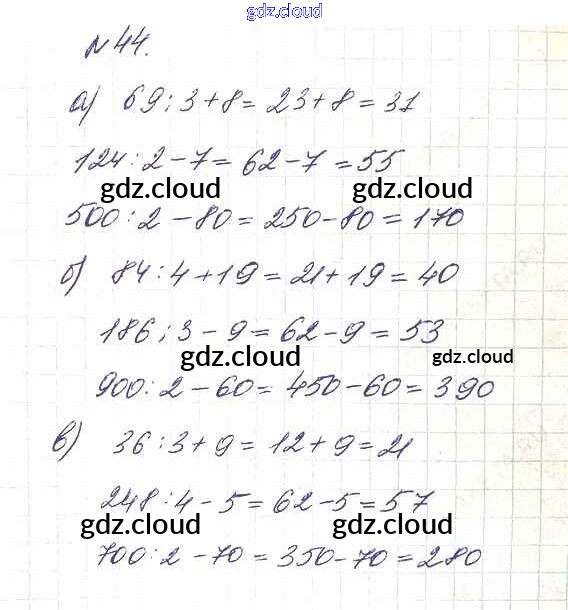 gdz.cloud
№ 44.
а) 69 : 3 + 8 = 23 + 8 = 31
124 : 2 - 7 = 62 - 7 = 55
gdz.cloud gdz.cloud
500 : 2 - 80 = 250 - 80 = 170
б) 84 : 4 + 19 = 21 + 19 = 40
186 : 3 - 9 = 62 - 9 = 53
gdz.cloud gdz.cloud
900 : 2 - 60 = 450 - 60 = 390
в) 36 : 3 + 9 = 12 + 9 = 21
248 : 4 - 5 = 62 - 5 = 57
gdz.cloud gdz.cloud
700 : 2 - 70 = 350 - 70 = 280